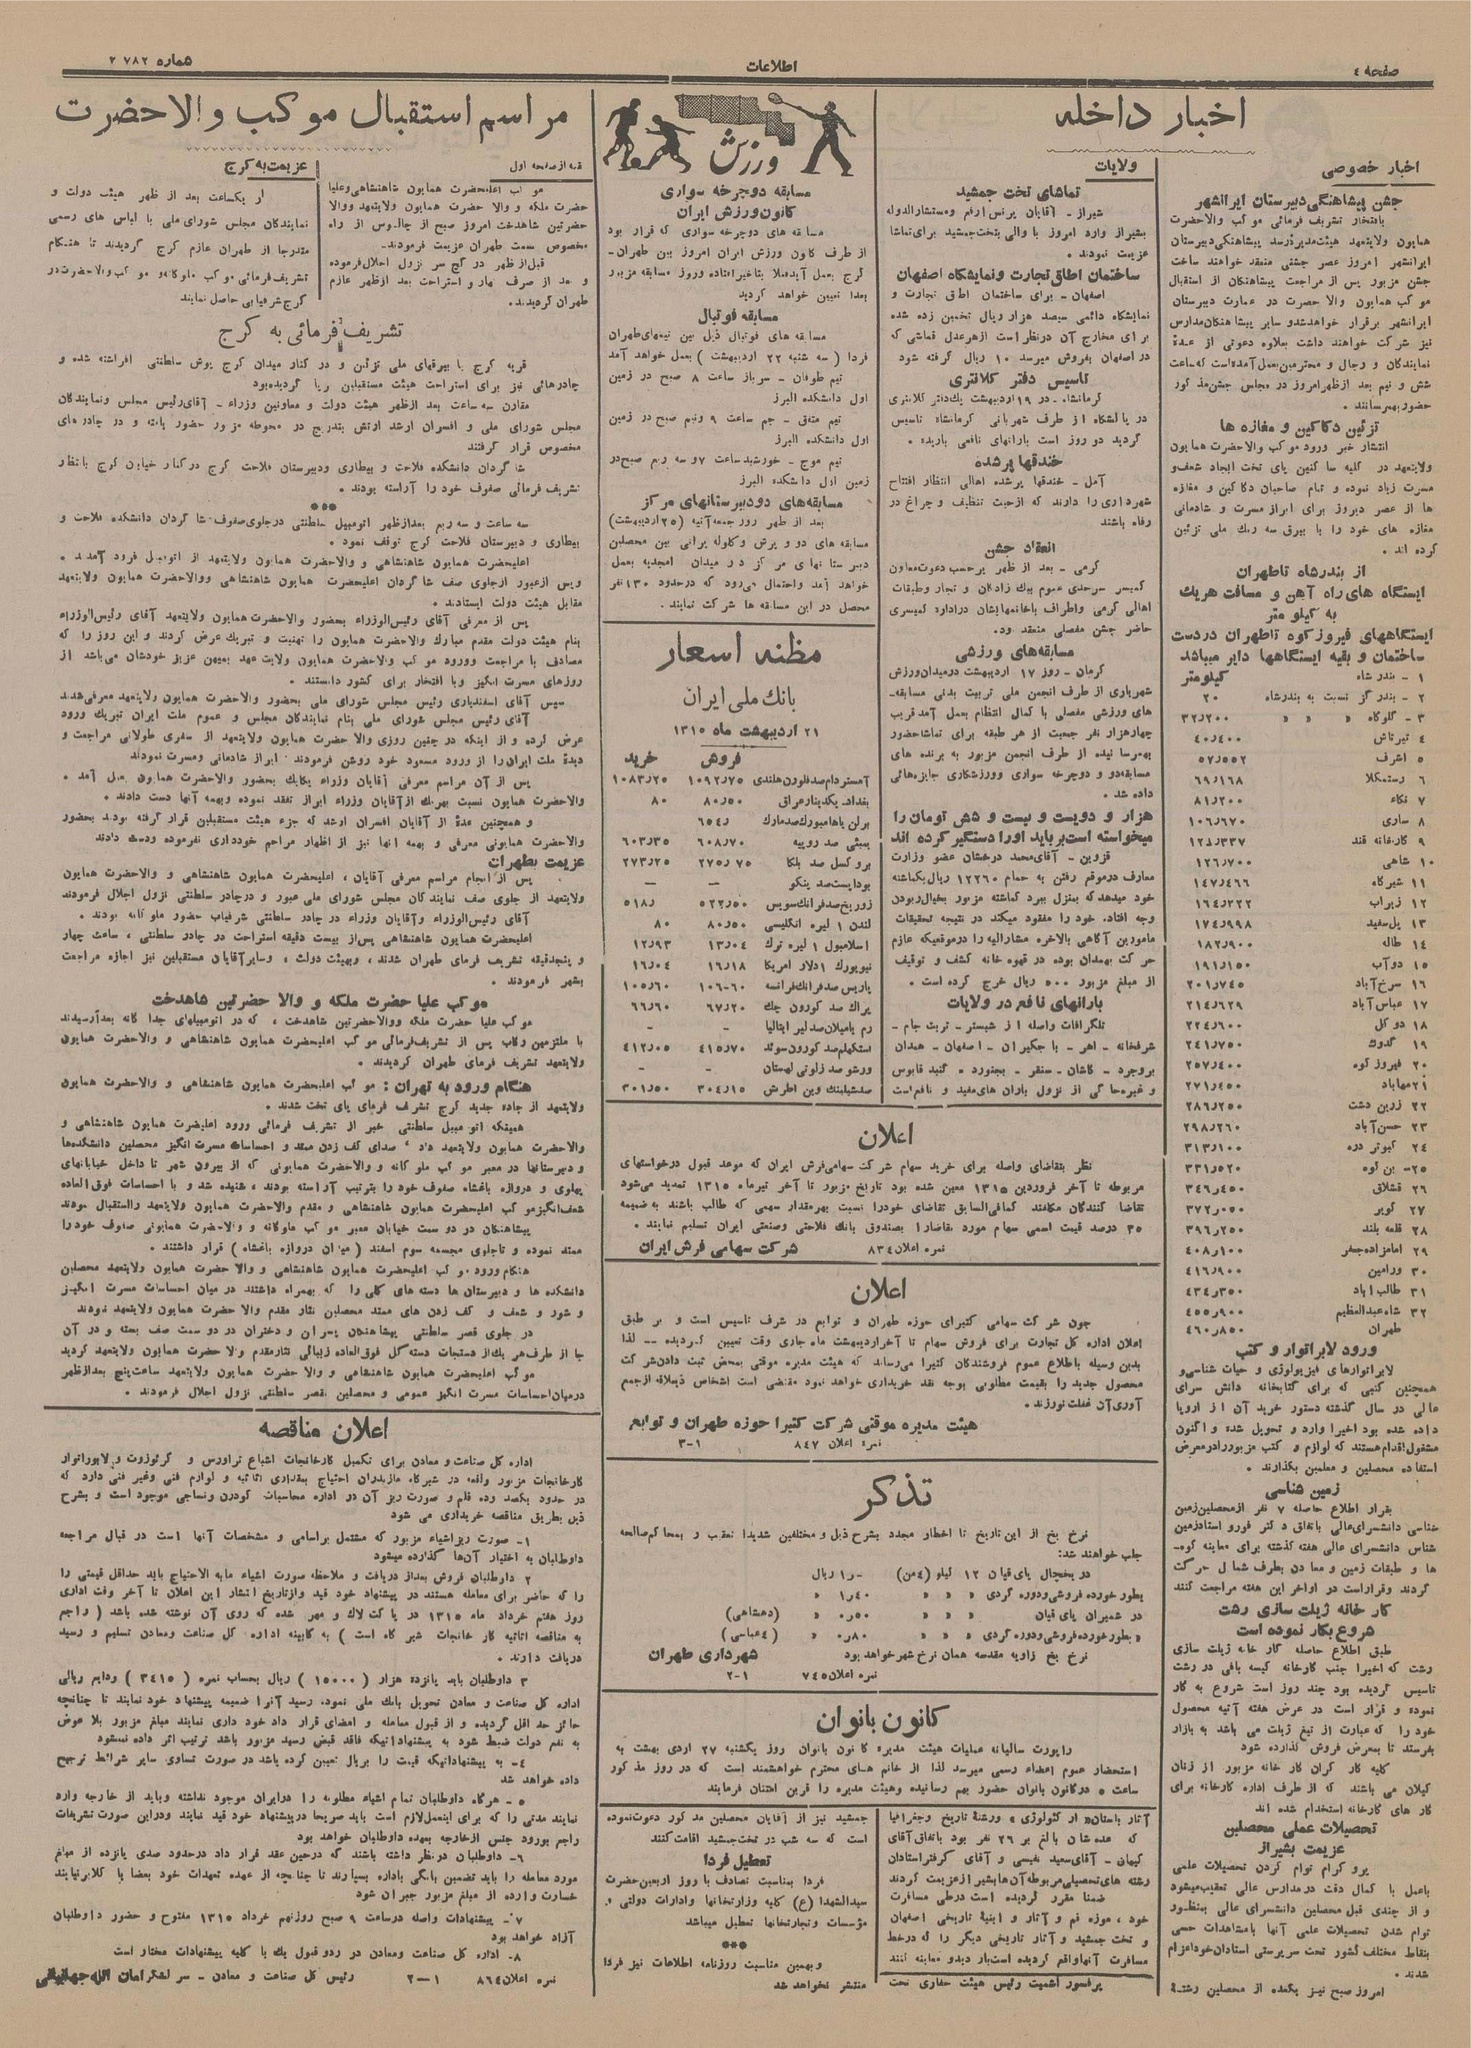 صفحه ٤
اطلاعات
شماره ۲۷۸۲
اخبار داخله
اخبار خصوصی
جشن پیشاهنگی دبیرستان ایرانشهر
بافتخار تشریف فرمائی موکب والاحضرت
همایون ولایتعهد هیئت مدیره رسد پیشاهنگی دبیرستان
ایرانشهر امروز عصر جشنی منعقد خواهند ساخت
جشن مزبور پس از مراجعت پیشاهنگان از استقبال
موکب همایون والاحضرت در عمارت دبیرستان
ایرانشهر برقرار خواهد شد و سایر پیشاهنگان مدارس
نیز شرکت خواهند داشت بعلاوه دعوتی از عدهٔ
نمایندگان و رجال و محترمین بعمل آمده است که ساعت
شش و نیم بعد از ظهر امروز در مجلس جشن مذکور
حضور بهم رسانند.
تزئین دکاکین و مغازه ها
انتشار خبر ورود موکب والاحضرت همایون
ولایتعهد در کلیه ساکنین پای تخت ایجاد شعف و
مسرت زیاد نموده و تمام صاحبان دکاکین و مغازه
ها از عصر دیروز برای ابراز مسرت و شادمانی
مغازه های خود را با بیرق سه رنگ ملی تزئین
کرده اند.
از بندرشاه تا طهران
ایستگاه های راه آهن و مسافت هریک
به کیلو متر
ایستگاههای فیروز کوه تا طهران در دست
ساختمان و بقیه ایستگاهها دایر میباشد
۱ - بندر شاه کیلومتر
۲ - بندر گز نسبت به بندرشاه ۲۰
۳ - گلوگاه » » » ۳۲٫۲۰۰
٤ تیرتاش ٤۰٫٤۰۰
٥ اشرف ٥۷٫٥٥۲
٦ رستمکلا ٦۹٫۱٦۸
۷ نکاء ۸۱٫۲۰۰
۸ ساری ۱۰٦٫٦۷۰
۹ کارخانه قند ۱۲٤٫۳۳۷
۱۰ شاهی ۱۲٦٫۷۰۰
۱۱ شیرگاه ۱٤۷٫٤٦٦
۱۲ زیراب ۱٦٤٫۲۲۲
۱۳ پل سفید ۱۷٤٫۹۹۸
۱٤ طاله ۱۸۲٫۹۰۰
۱٥ دوآب ۱۹۱٫۱٥۰
۱٦ سرخ آباد ۲۰۱٫۷٤٥
۱۷ عباس آباد ۲۱٤٫٦۲۹
۱۸ دوگل ۲۲٤٫٦۰۰
۱۹ گدوك ۲٤۱٫۷٥۰
۲۰ فیروز کوه ۲٥۷٫٤۰۰
۲۱ مهاباد ۲۷۱٫٤٥۰
۲۲ زرین دشت ۲۸٦٫۲٥۰
۲۳ حسن آباد ۲۹۸٫۲٦۰
۲٤ کبوتر دره ۳۱۳٫۱۰۰
۲٥- بن کوه ۳۳۱٫٥۲۰
۲٦ قشلاق ۳٤٦٫٤٥۰
۲۷ کویر ۳۷۲٫۰٥۰
۲۸ قلعه بلند ۳۹٦٫۲٥۰
۲۹ امامزاده جعفر ٤۰۸٫۱۰۰
۳۰ ورامین ٤۱٦٫۹۰۰
۳۱ طالب آباد ٤۳٤٫۳٥۰
۳۲ شاه عبدالعظیم ٤٥٥٫۹۰۰
طهران ٤٦۰٫۸٥۰
ورود لابراتوار و کتب
لابراتوارهای فیزیولوژی و حیات شناسی و
همچنین کتبی که برای کتابخانه دانش سرای
عالی در سال گذشته دستور خرید آن از اروپا
داده شده بود اخیرا وارد و تحویل شده و اکنون
مشغول اقدام هستند که لوازم و کتب مزبور را در معرض
استفاده محصلین و معلمین بگذارند.
زمین شناسی
بقرار اطلاع حاصله ۷ نفر از محصلین زمین
شناسی دانشسرای عالی باتفاق دکتر فورو استاد زمین
شناس دانشسرای عالی هفته گذشته برای معاینه کوه-
ها و طبقات زمین و معادن بطرف شمال حرکت
کردند و قرار است در اواخر این هفته مراجعت کنند
کارخانه ژیلت سازی رشت
شروع بکار نموده است
طبق اطلاع حاصله کارخانه ژیلت سازی
رشت که اخیرا جنب کارخانه کیسه بافی در رشت
تاسیس گردیده بود چند روز است شروع به کار
نموده و قرار است در عرض هفته آتیه محصول
خود را که عبارت از تیغ ژیلت می باشد به بازار
بفرستد تا بمعرض فروش گذارده شود
کلیه کارگران کارخانه مزبور از زنان
گیلان می باشند که از طرف اداره کارخانه برای
کارهای کارخانه استخدام شده اند
تحصیلات عملی محصلین
عزیمت بشیراز
پروگرام توام کردن تحصیلات علمی
باعمل با کمال دقت در مدارس عالی تعقیب میشود
و از چندی قبل محصلین دانشسرای عالی بمنظور
توام شدن تحصیلات علمی آنها با مشاهدات حسی
بنقاط مختلف کشور تحت سرپرستی استادان خود اعزام
شدند.
امروز صبح نیز یکعده از محصلین رشتهٔ
ولایات
تماشای تخت جمشید
شیراز - آقایان پرنس ارفع و مستشارالدوله
بشیراز وارد امروز با والی بتخت جمشید برای تماشا
عزیمت نمودند.
ساختمان اطاق تجارت و نمایشگاه اصفهان
اصفهان - برای ساختمان اطاق تجارت و
نمایشگاه دائمی سیصد هزار ریال تخمین زده شده
برای مخارج آن در نظر است از هر عدل قماشی که
در اصفهان بفروش میرسد ۱۰ ریال گرفته شود
تاسیس دفتر کلانتری
کرمانشاه - در ۱۹ اردیبهشت یک دفتر کلانتری
در پالشگاه از طرف شهربانی کرمانشاه تاسیس
گردید دو روز است بارانهای نافعی باریده.
خندقها پر شده
آمل - خندقها پر شده اهالی انتظار افتتاح
شهرداری را دارند که از حیث تنظیف و چراغ در
رفاه باشند
انعقاد جشن
گرمی - بعد از ظهر بر حسب دعوت معاون
کمیسر سرحدی عموم بیك زادگان و تجار و طبقات
اهالی گرمی و اطراف باخانمهایشان در اداره کمیسری
حاضر جشن مفصلی منعقد ود.
مسابقه های ورزشی
کرمان - روز ۱۷ اردیبهشت در میدان ورزش
شهریاری از طرف انجمن ملی تربیت بدنی مسابقه-
های ورزشی مفصلی با کمال انتظام بعمل آمد قریب
چهار هزار نفر جمعیت از هر طبقه برای تماشا حضور
بهم رسانیده از طرف انجمن مزبور به برنده های
مسابقه دو و دوچرخه سواری و ورزشکاری جایزه هائی
داده شد.
هزار و دویست و بیست و شش تومان را
میخواسته است بر باید او را دستگیر کرده اند
قزوین - آقای محمد درخشان عضو وزارت
معارف در موقع رفتن به حمام ۱۲۲٦۰ ریال بگماشته
خود میدهد که بمنزل ببرد گماشته مزبور بخیال ربودن
وجه افتاد. خود را مفقود میکند در نتیجه تحقیقات
مامورین آگاهی بالاخره مشارالیه را در موقعیکه عازم
حرکت بهمدان بوده در قهوه خانه کشف و توقیف
از مبلغ مزبور ٥۰۰ ریال خرج کرده است.
بارانهای نافع در ولایات
تلگرافات واصله از شبستر - تربت جام -
شرفخانه - اهر - باجگیران - اصفهان - همدان
بروجرد - کاشان - سنقر - بجنورد - گنبد قابوس
و غیره حاکی از نزول باران های مفید و نافع است
ورزش
مسابقه دوچرخه سواری
کانون ورزش ایران
مسابقه های دوچرخه سواری که قرار بود
از طرف کانون ورزش ایران امروز بین طهران-
کرج بعمل آید فعلا بتاخیر افتاده و روز مسابقه مزبور
بعدا تعیین خواهد گردید
مسابقه فوتبال
مسابقه های فوتبال ذیل بین تیمهای طهران
فردا ( سه شنبه ۲۲ اردیبهشت ) بعمل خواهد آمد
تیم طوفان - سرباز ساعت ۸ صبح در زمین
اول دانشکده البرز
تیم متفق - جم ساعت ۹ و نیم صبح در زمین
اول دانشکده البرز
تیم موج - خورشید ساعت ۷ و سه ربع صبح در
زمین اول دانشکده البرز
مسابقه های دو دبیرستانهای مرکز
بعد از ظهر روز جمعه آتیه (۲٥ اردیبهشت)
مسابقه های دو و پرش و گلوله پرانی بین محصلین
دبیرستانهای مرکز در میدان امجدیه بعمل
خواهد آمد و احتمال میرود که در حدود ۱۳۰ نفر
محصل در این مسابقه ها شرکت نمایند.
مظنه اسعار
بانك ملی ایران
۲۱ اردیبهشت ماه ۱۳۱٥
فروش خرید
آمستردام صد فلورن هلندی ۱۰۹۲٫۲٥ ۱۰۸۳٫۲٥
بغداد یکدینار عراق ۸۰٫٥۰ ۸۰
برلن یا هامبورگ صد مارك ٦٥٤٫
بمبئی صد روپیه ٦۰۸٫۷۰ ٦۰۳٫۳٥
بروکسل صد بلگا ۲۷٥٫۷٥ ۲۷۳٫۲٥
بوداپست صد پنگو — —
زوریخ صد فرانك سویس ٥۲۲٫٥۰ ٥۱۸٫
لندن ۱ لیره انگلیسی ۸۰٫٥۰ ۸۰
اسلامبول ۱ لیره ترك ۱۳٫۰٤ ۱۲٫۹۳
نیویورك ۱ دلار امریکا ۱٦٫۱۸ ۱٦٫۰٤
پاریس صد فرانك فرانسه ۱۰٦-٦۰ ۱۰٥٫٦۰
پراك صد کورون چك ٦۷٫۲۰ ٦٦٫٦۰
رم یا میلان صد لیر ایتالیا - -
استکهلم صد کورون سوئد ٤۱٥٫۷۰ ٤۱۲٫۰٥
ورشو صد زلوتی لهستان - -
صد شیلینك وین اطرش ۳۰٤٫۱٥ ۳۰۱٫٥۰
اعلان
نظر بتقاضای واصله برای خرید سهام شرکت سهامی فرش ایران که موعد قبول درخواستهای
مربوطه تا آخر فروردین ۱۳۱٥ معین شده بود تاریخ مزبور تا آخر تیرماه ۱۳۱٥ تمدید میشود
تقاضا کنندگان مکلفند کمافی السابق تقاضای خود را نسبت بهر مقدار سهمی که طالب باشند به ضمیمه
۳٥ درصد قیمت اسمی سهام مورد تقاضا را بصندوق بانك فلاحتی و صنعتی ایران تسلیم نمایند.
نمره اعلان ۸۳٤ شرکت سهامی فرش ایران
اعلان
چون شرکت سهامی کتیرای حوزه طهران و توابع در شرف تاسیس است و بر طبق
اعلان اداره کل تجارت برای فروش سهام تا آخر اردیبهشت ماه جاری وقت تعیین گردیده -- لذا
بدین وسیله باطلاع عموم فروشندگان کتیرا میرساند که هیئت مدیره موقتی بمحض ثبت دادن شرکت
محصول جدید را بقیمت مطلوبی بوجه نقد خریداری خواهد نمود مقتضی است اشخاص ذیعلاقه از جمع
آوری آن غفلت نورزند.
هیئت مدیره موقتی شرکت کتیرا حوزه طهران و توابع
نمره اعلان ۸٤۷ ۱-۳
تذکر
نرخ یخ از این تاریخ تا اخطار مجدد بشرح ذیل و مختلفین شدیدا تعقیب و بمحاکم صالحه
جلب خواهند شد:
در یخچال پای قپان ۱۲ کیلو (٤ من) ۱٫- ریال
بطور خورده فروشی و دوره گردی » » » ۱٫٤۰ »
در شمیران پای قپان » » » ۰٫٥۰ » (دهشاهی)
» بطور خورده فروشی و دوره گردی » » » ۰٫۸۰ » (٤ عباسی)
نرخ یخ زاویه مقدسه همان نرخ شهر خواهد بود شهرداری طهران
نمره اعلان ۷٤٥ ۱-۲
کانون بانوان
راپورت سالیانه عملیات هیئت مدیره کانون بانوان روز یکشنبه ۲۷ اردی بهشت به
استحضار عموم اعضاء رسمی میرسد لذا از خانم های محترم خواهشمند است که در روز مذکور
ساعت ٥ در کانون بانوان حضور بهم رسانیده و هیئت مدیره را قرین امتنان فرمایند
آثار باستان «ارکئولوژی» و رشتهٔ تاریخ و جغرافیا
که عده شان بالغ بر ۲٦ نفر بود باتفاق آقای
کیهان - آقای سعید نفیسی و آقای گرفتر استادان
رشته های تحصیلی مربوطه آن ها بشیراز عزیمت کردند
ضمنا مقرر گردیده است در طی مسافرت
خود، موزه قم و آثار و ابنیهٔ تاریخی اصفهان
و تخت جمشید و آثار تاریخی دیگر را که در خط
مسافرت آنها واقع گردیده است بازدید و معاینه کنند
پرفسور اشمیت رئیس هیئت حفاری تخت
جمشید نیز از آقایان محصلین مذکور دعوت نموده
است که سه شب در تخت جمشید اقامت کنند
تعطیل فردا
فردا بمناسبت تصادف با روز اربعین حضرت
سیدالشهدا (ع) کلیه وزارتخانها و ادارات دولتی و
مؤسسات و تجارتخانها تعطیل میباشد
***
و بهمین مناسبت روزنامه اطلاعات نیز فردا
منتشر نخواهد شد
مراسم استقبال موکب والاحضرت
بقیه از صفحه اول
موکب اعلیحضرت همایون شاهنشاهی و علیا
حضرت ملکه و والا حضرت همایون ولایتعهد و والا
حضرتین شاهدخت امروز صبح از چالوس از راه
مخصوص سمت طهران عزیمت فرمودند.
قبل از ظهر در گچسر نزول اجلال فرموده
و بعد از صرف نهار و استراحت بعد از ظهر عازم
طهران گردیدند.
عزیمت به کرج
از یکساعت بعد از ظهر هیئت دولت و
نمایندگان مجلس شورای ملی با لباس های رسمی
متدرجا از طهران عازم کرج گردیدند تا هنگام
تشریف فرمائی موکب ملوکانه و موکب والاحضرت در
کرج شرفیابی حاصل نمایند
تشریف فرمائی به کرج
قریه کرج با بیرقهای ملی تزئین و در کنار میدان کرج پوش سلطنتی افراشته شده و
چادرهائی نیز برای استراحت هیئت مستقبلین برپا گردیده بود
مقارن سه ساعت بعد از ظهر هیئت دولت و معاونین وزراء - آقای رئیس مجلس و نمایندگان
مجلس شورای ملی و افسران ارشد ارتش بتدریج در محوطه مزبور حضور یافته و در چادرهای
مخصوص قرار گرفتند
شاگردان دانشکده فلاحت و بیطاری و دبیرستان فلاحت کرج در کنار خیابان کرج بانتظار
تشریف فرمائی صفوف خود را آراسته بودند.
***
سه ساعت و سه ربع بعد از ظهر اتومبیل سلطنتی در جلوی صفوف شاگردان دانشکده فلاحت و
بیطاری و دبیرستان فلاحت کرج توقف نمود.
اعلیحضرت همایون شاهنشاهی و والاحضرت همایون ولایتعهد از اتومبیل فرود آمدند.
و پس از عبور از جلوی صف شاگردان اعلیحضرت همایون شاهنشاهی و والاحضرت همایون ولایتعهد
مقابل هیئت دولت ایستادند.
پس از معرفی آقای رئیس الوزراء بحضور والاحضرت همایون ولایتعهد آقای رئیس الوزراء
بنام هیئت دولت مقدم مبارك والاحضرت همایون را تهنیت و تبریك عرض کردند و این روز را که
مصادف با مراجعت و ورود موکب والاحضرت همایون ولایتعهد بمیهن عزیز خودشان میباشد از
روزهای مسرت انگیز و با افتخار برای کشور دانستند.
سپس آقای اسفندیاری رئیس مجلس شورای ملی بحضور والاحضرت همایون ولایتعهد معرفی شدند
آقای رئیس مجلس شورای ملی بنام نمایندگان مجلس و عموم ملت ایران تبریك ورود
عرض کرده و از اینکه در چنین روزی والاحضرت همایون ولایتعهد از سفری طولانی مراجعت و
دیدهٔ ملت ایران را از ورود مسعود خود روشن فرمودند ابراز شادمانی و مسرت نمودند
پس از آن مراسم معرفی آقایان وزراء یکایك بحضور والاحضرت همایون بعمل آمد.
والاحضرت همایون نسبت بهریك از آقایان وزراء ابراز تفقد نموده و بهمه آنها دست دادند.
و همچنین عدهٔ از آقایان افسران ارشد که جزء هیئت مستقبلین قرار گرفته بودند بحضور
والاحضرت همایونی معرفی و بهمه آنها نیز از اظهار مراحم خودداری نفرموده و دست دادند
عزیمت بطهران
پس از انجام مراسم معرفی آقایان، اعلیحضرت همایون شاهنشاهی و والاحضرت همایون
ولایتعهد از جلوی صف نمایندگان مجلس شورای ملی عبور و در چادر سلطنتی نزول اجلال فرمودند
آقای رئیس الوزراء و آقایان وزراء در چادر سلطنتی شرفیاب حضور ملوکانه بودند.
اعلیحضرت همایون شاهنشاهی پس از بیست دقیقه استراحت در چادر سلطنتی، ساعت چهار
و پنجدقیقه تشریف فرمای طهران شدند، و بهیئت دولت، و سایر آقایان مستقبلین نیز اجازه مراجعت
بشهر فرمودند.
موکب علیا حضرت ملکه و والا حضرتین شاهدخت
موکب علیا حضرت ملکه و والاحضرتین شاهدخت، که در اتومبیلهای جداگانه بعدا رسیدند
با ملتزمین رکاب پس از تشریف فرمائی موکب اعلیحضرت همایون شاهنشاهی و والاحضرت همایون
ولایتعهد تشریف فرمای طهران گردیدند.
هنگام ورود به تهران: موکب اعلیحضرت همایون شاهنشاهی و والاحضرت همایون
ولایتعهد از جاده جدید کرج تشریف فرمای پای تخت شدند.
همینکه اتومبیل سلطنتی خبر از تشریف فرمائی ورود اعلیحضرت همایون شاهنشاهی و
والاحضرت همایون ولایتعهد داد، صدای کف زدن ممتد و احساسات مسرت انگیز محصلین دانشکده ها
و دبیرستانها در معبر موکب ملوکانه و والاحضرت همایونی که از بیرون شهر تا داخل خیابانهای
پهلوی و دروازه باغشاه صفوف خود را بترتیب آراسته بودند، شنیده شد و با احساسات فوق العاده
شعف انگیز موکب اعلیحضرت همایون شاهنشاهی و مقدم والاحضرت همایون ولایتعهد را استقبال نمودند
پیشاهنگان در دو سمت خیابان معبر موکب ملوکانه و والاحضرت همایونی صفوف خود را
ممتد نموده و تا جلوی مجسمه سوم اسفند (میدان دروازه باغشاه) قرار داشتند.
هنگام ورود موکب اعلیحضرت همایون شاهنشاهی و والاحضرت همایون ولایتعهد محصلین
دانشکده ها و دبیرستان ها دسته های گلی را که بهمراه داشتند در میان احساسات مسرت انگیز
و شور و شعف و کف زدن های ممتد محصلین نثار مقدم والاحضرت همایون ولایتعهد نمودند
در جلوی قصر سلطنتی پیشاهنگان پسران و دختران در دو سمت صف بسته و در آن
جا از طرف هر یك از دستجات دسته گل فوق العاده زیبائی نثار مقدم والاحضرت همایون ولایتعهد گردید
موکب اعلیحضرت همایون شاهنشاهی و والاحضرت همایون ولایتعهد ساعت پنج بعد از ظهر
در میان احساسات مسرت انگیز عمومی و محصلین بقصر سلطنتی نزول اجلال فرمودند.
اعلان مناقصه
اداره کل صناعت و معادن برای تکمیل کارخانجات اشباع تراورس و کرئوزوت و لابوراتوار
کارخانجات مزبور واقعه در شیرگاه مازندران احتیاج بمقداری اثاثیه و لوازم فنی و غیر فنی دارد که
در حدود یکصد و ده قلم و صورت ریز آن در اداره محاسبات کودرن و نساجی موجود است و بشرح
ذیل بطریق مناقصه خریداری می شود
۱- صورت ریز اشیاء مزبور که مشتمل بر اسامی و مشخصات آنها است در قبال مراجعه
داوطلبان به اختیار آنها گذارده میشود
۲ داوطلبان فروش بعد از دریافت و ملاحظه صورت اشیاء مابه الاحتیاج باید حداقل قیمتی را
را که حاضر برای معامله هستند در پیشنهاد خود قید و از تاریخ انتشار این اعلان تا آخر وقت اداری
روز هفتم خرداد ماه ۱۳۱٥ در پاکت لاك و مهر شده که روی آن نوشته شده باشد (راجع
به مناقصه اثاثیه کارخانجات شیرگاه است) به کابینه اداره کل صناعت و معادن تسلیم و رسید
دریافت دارند.
۳ داوطلبان باید پانزده هزار (۱٥۰۰۰) ریال بحساب نمره (۳٤۱٥) ودایع ریالی
اداره کل صناعت و معادن تحویل بانك ملی نموده، رسید آنرا ضمیمه پیشنهاد خود نمایند تا چنانچه
حائز حداقل گردیده و از قبول معامله و امضای قرارداد خودداری نمایند مبلغ مزبور بلا عوض
به نفع دولت ضبط شود به پیشنهاداتیکه فاقد قبض رسید مزبور باشد ترتیب اثر داده نمیشود
٤- به پیشنهاداتیکه قیمت را بریال تعیین کرده باشد در صورت تساوی سایر شرائط ترجیح
داده خواهد شد
٥- هرگاه داوطلبان تمام اشیاء مطلوبه را در ایران موجود نداشته و باید از خارجه وارد
نمایند مدتی را که برای اینعمل لازم است باید صریحا در پیشنهاد خود قید نمایند و در این صورت تشریفات
راجع بورود جنس از خارجه بعهده داوطلبان خواهد بود
٦- داوطلبان در نظر داشته باشند که در حین عقد قرارداد در حدود صدی پانزده از مبلغ
مورد معامله را باید تضمین بانکی باداره بسپارند تا چنانچه از عهده تعهدات خود بعضا یا کلا برنیایند
خسارت وارده از مبلغ مزبور جبران شود
۷- پیشنهادات واصله در ساعت ۹ صبح روز نهم خرداد ۱۳۱٥ مفتوح و حضور داوطلبان
آزاد خواهد بود
۸- اداره کل صناعت و معادن در رد و قبول یك یا کلیه پیشنهادات مختار است
نمره اعلان ۸٦٤ ۱-۲ رئیس کل صناعت و معادن - سرلشگر امان الله جهانبانی